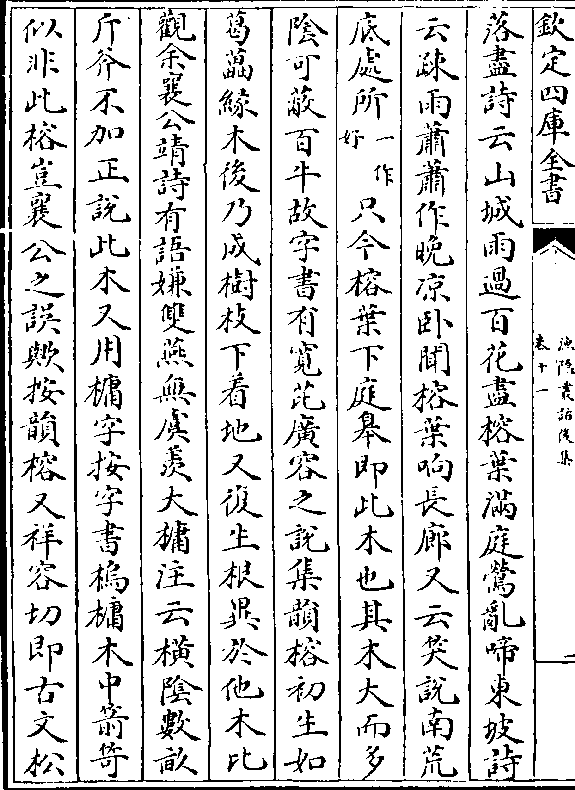 欽定四庫全書
漁隱叢話後集
卷十一
落盡詩云山城雨過百花盡榕葉滿庭鶯亂啼東坡詩
云疎雨蕭蕭作晚凉卧聞榕葉响長廊又云笑說南荒
底處所一作好只今榕葉下庭皋即此木也其木大而多
陰可蔽百牛故字書有寛芘廣容之說集韻榕初生如
葛藟緣木後乃成樹枝下着地又復生根異於他木比
觀余襄公靖詩有語嫌雙燕無虞羨大槦注云橫陰數畝
斤斧不加正說此木又用槦字按字書樢槦木中箭笴
似非此榕豈襄公之誤歟按韻榕又祥容切即古文松